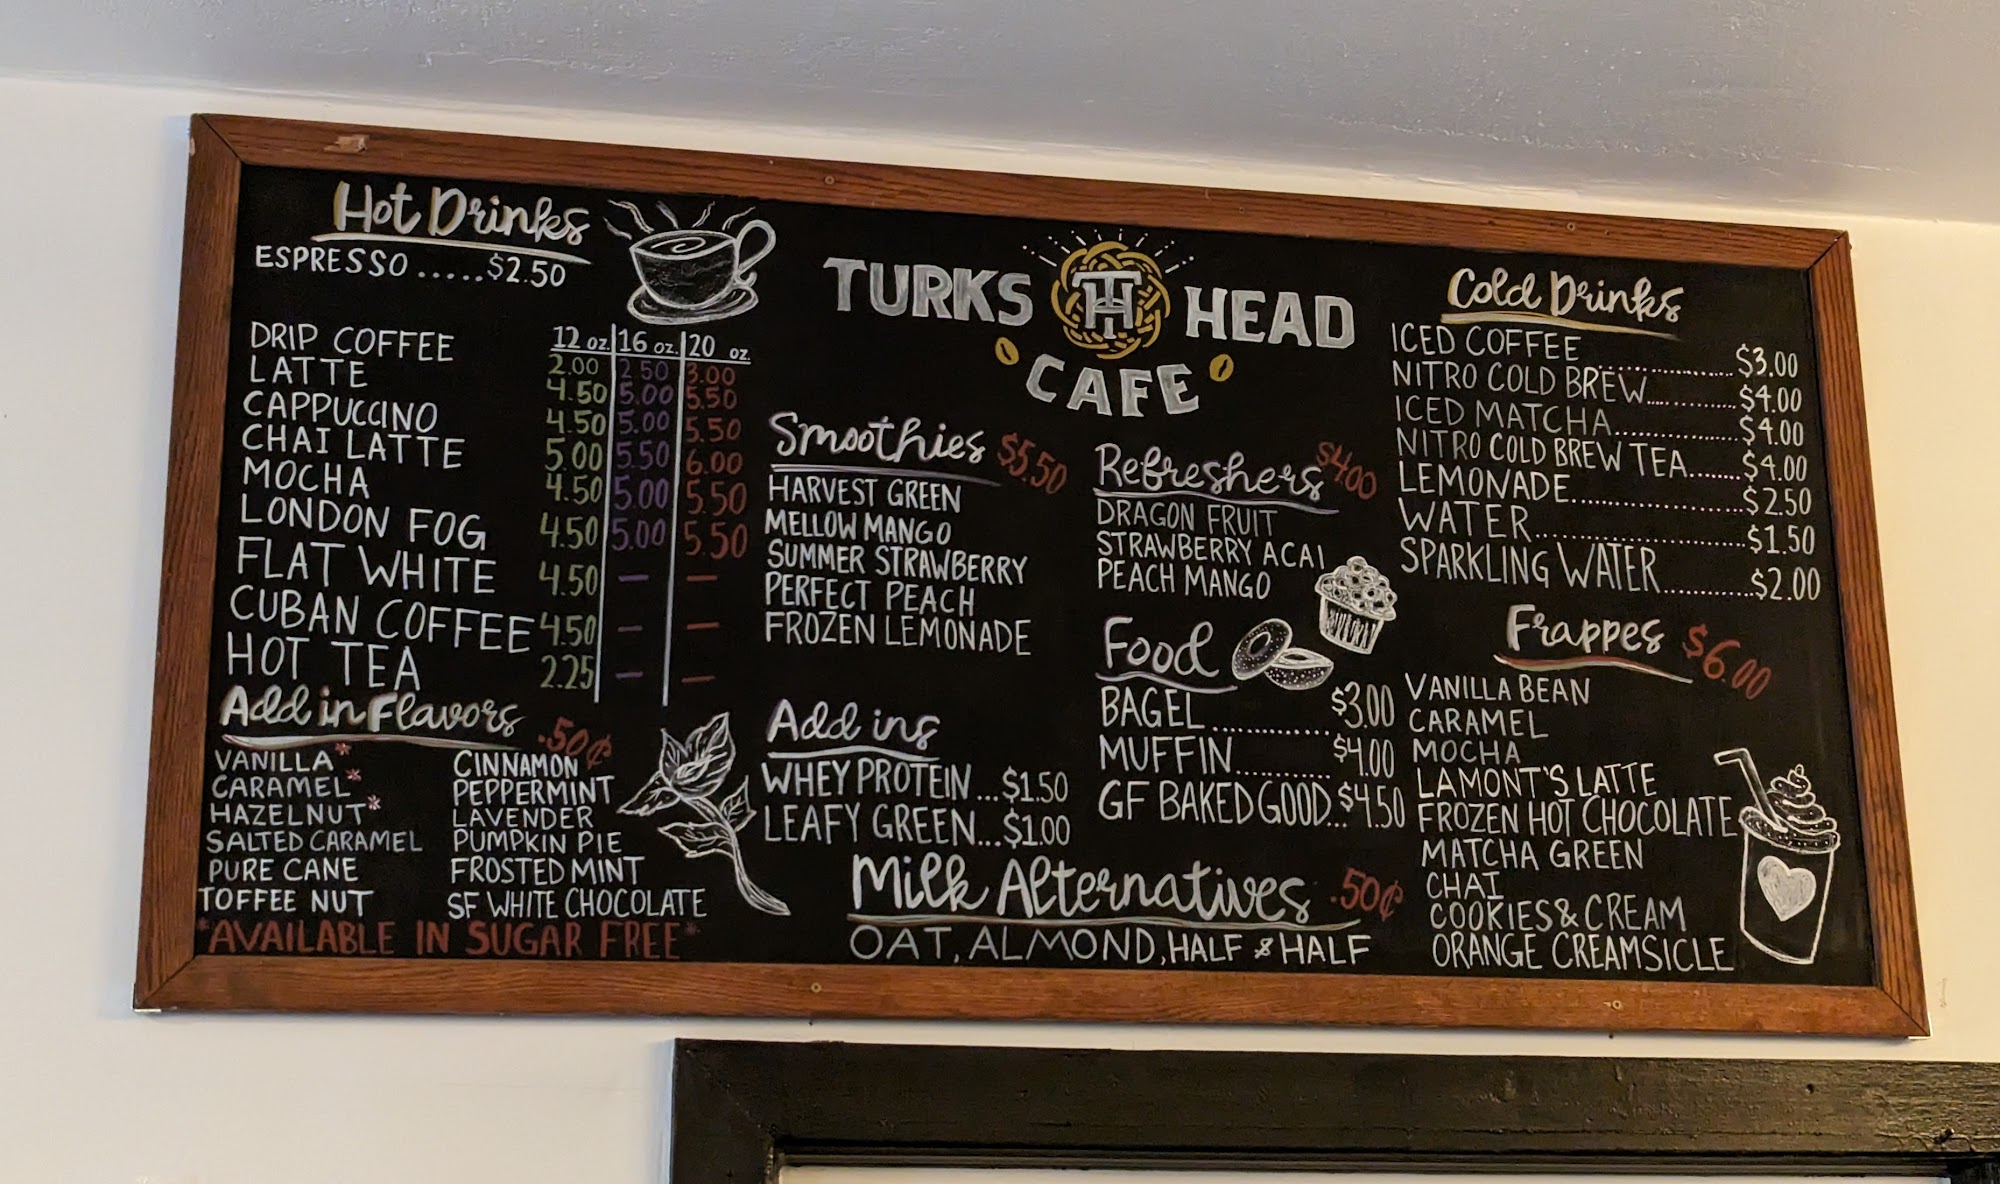 Hot Drinks
ESPRESSO.....$2.50
12 oz. 16 oz. 20 oz.
DRIP COFFEE 2.00 2.50 3.00
LATTE 4.50 5.00 5.50
CAPPUCCINO 4.50 5.00 5.50
CHAI LATTE 5.00 5.50 6.00
MOCHA 4.50 5.00 5.50
LONDON FOG 4.50 5.00 5.50
FLAT WHITE 4.50 — —
CUBAN COFFEE 4.50 — —
HOT TEA 2.25 — —
Add in Flavors .50¢
VANILLA*
CARAMEL*
HAZELNUT*
SALTED CARAMEL
PURE CANE
TOFFEE NUT
CINNAMON
PEPPERMINT
LAVENDER
PUMPKIN PIE
FROSTED MINT
SF WHITE CHOCOLATE
*AVAILABLE IN SUGAR FREE*
TURKS TH HEAD
CAFE
Smoothies $5.50
HARVEST GREEN
MELLOW MANGO
SUMMER STRAWBERRY
PERFECT PEACH
FROZEN LEMONADE
Add ins
WHEY PROTEIN...$1.50
LEAFY GREEN...$1.00
Refreshers $4.00
DRAGON FRUIT
STRAWBERRY ACAI
PEACH MANGO
Food
BAGEL..............$3.00
MUFFIN...........$4.00
GF BAKED GOOD...$4.50
Milk Alternatives .50¢
OAT, ALMOND, HALF & HALF
Cold Drinks
ICED COFFEE.................$3.00
NITRO COLD BREW.............$4.00
ICED MATCHA.................$4.00
NITRO COLD BREW TEA......$4.00
LEMONADE.....................$2.50
WATER..........................$1.50
SPARKLING WATER............$2.00
Frappes $6.00
VANILLA BEAN
CARAMEL
MOCHA
LAMONT'S LATTE
FROZEN HOT CHOCOLATE
MATCHA GREEN
CHAI
COOKIES & CREAM
ORANGE CREAMSICLE